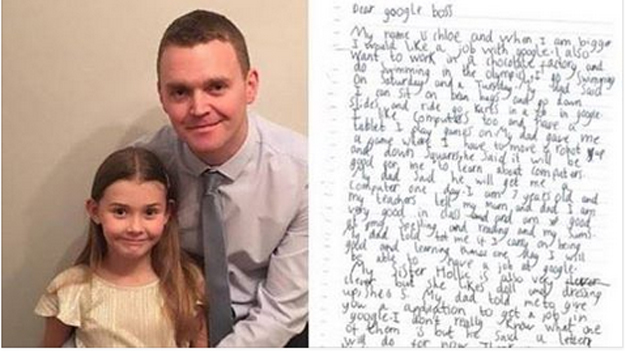 Dear google boss
My name is chloe and when I am bigger
I would like a job with google. I also
want to work in a chocolate factory and
do swimming in the olympics. I go swimming
on Saturday and a Tuesday. My dad said
I can sit on bean bags and go down
slides and ride go karts in a job in google.
I like computers too and have a
tablet I play games on. My dad gave me
a game what I have to move a robot up
and down squares, he said it will be
good for me to learn about computers.
My dad said he will get me a
computer one day. I am 7 years old and
my teachers tell my mum and dad I am
very good in class and am good
at my spelling and reading and my sums.
my dad told me if I carry on being
good and learning then one day I will
be able to have a job at google.
My sister Hollie is also very
clever but she likes doll and dressing
up, she's 5. My dad told me to give
you a application to get a job in
google. I don't really know what one
of them is but he said a letter
will do for now.